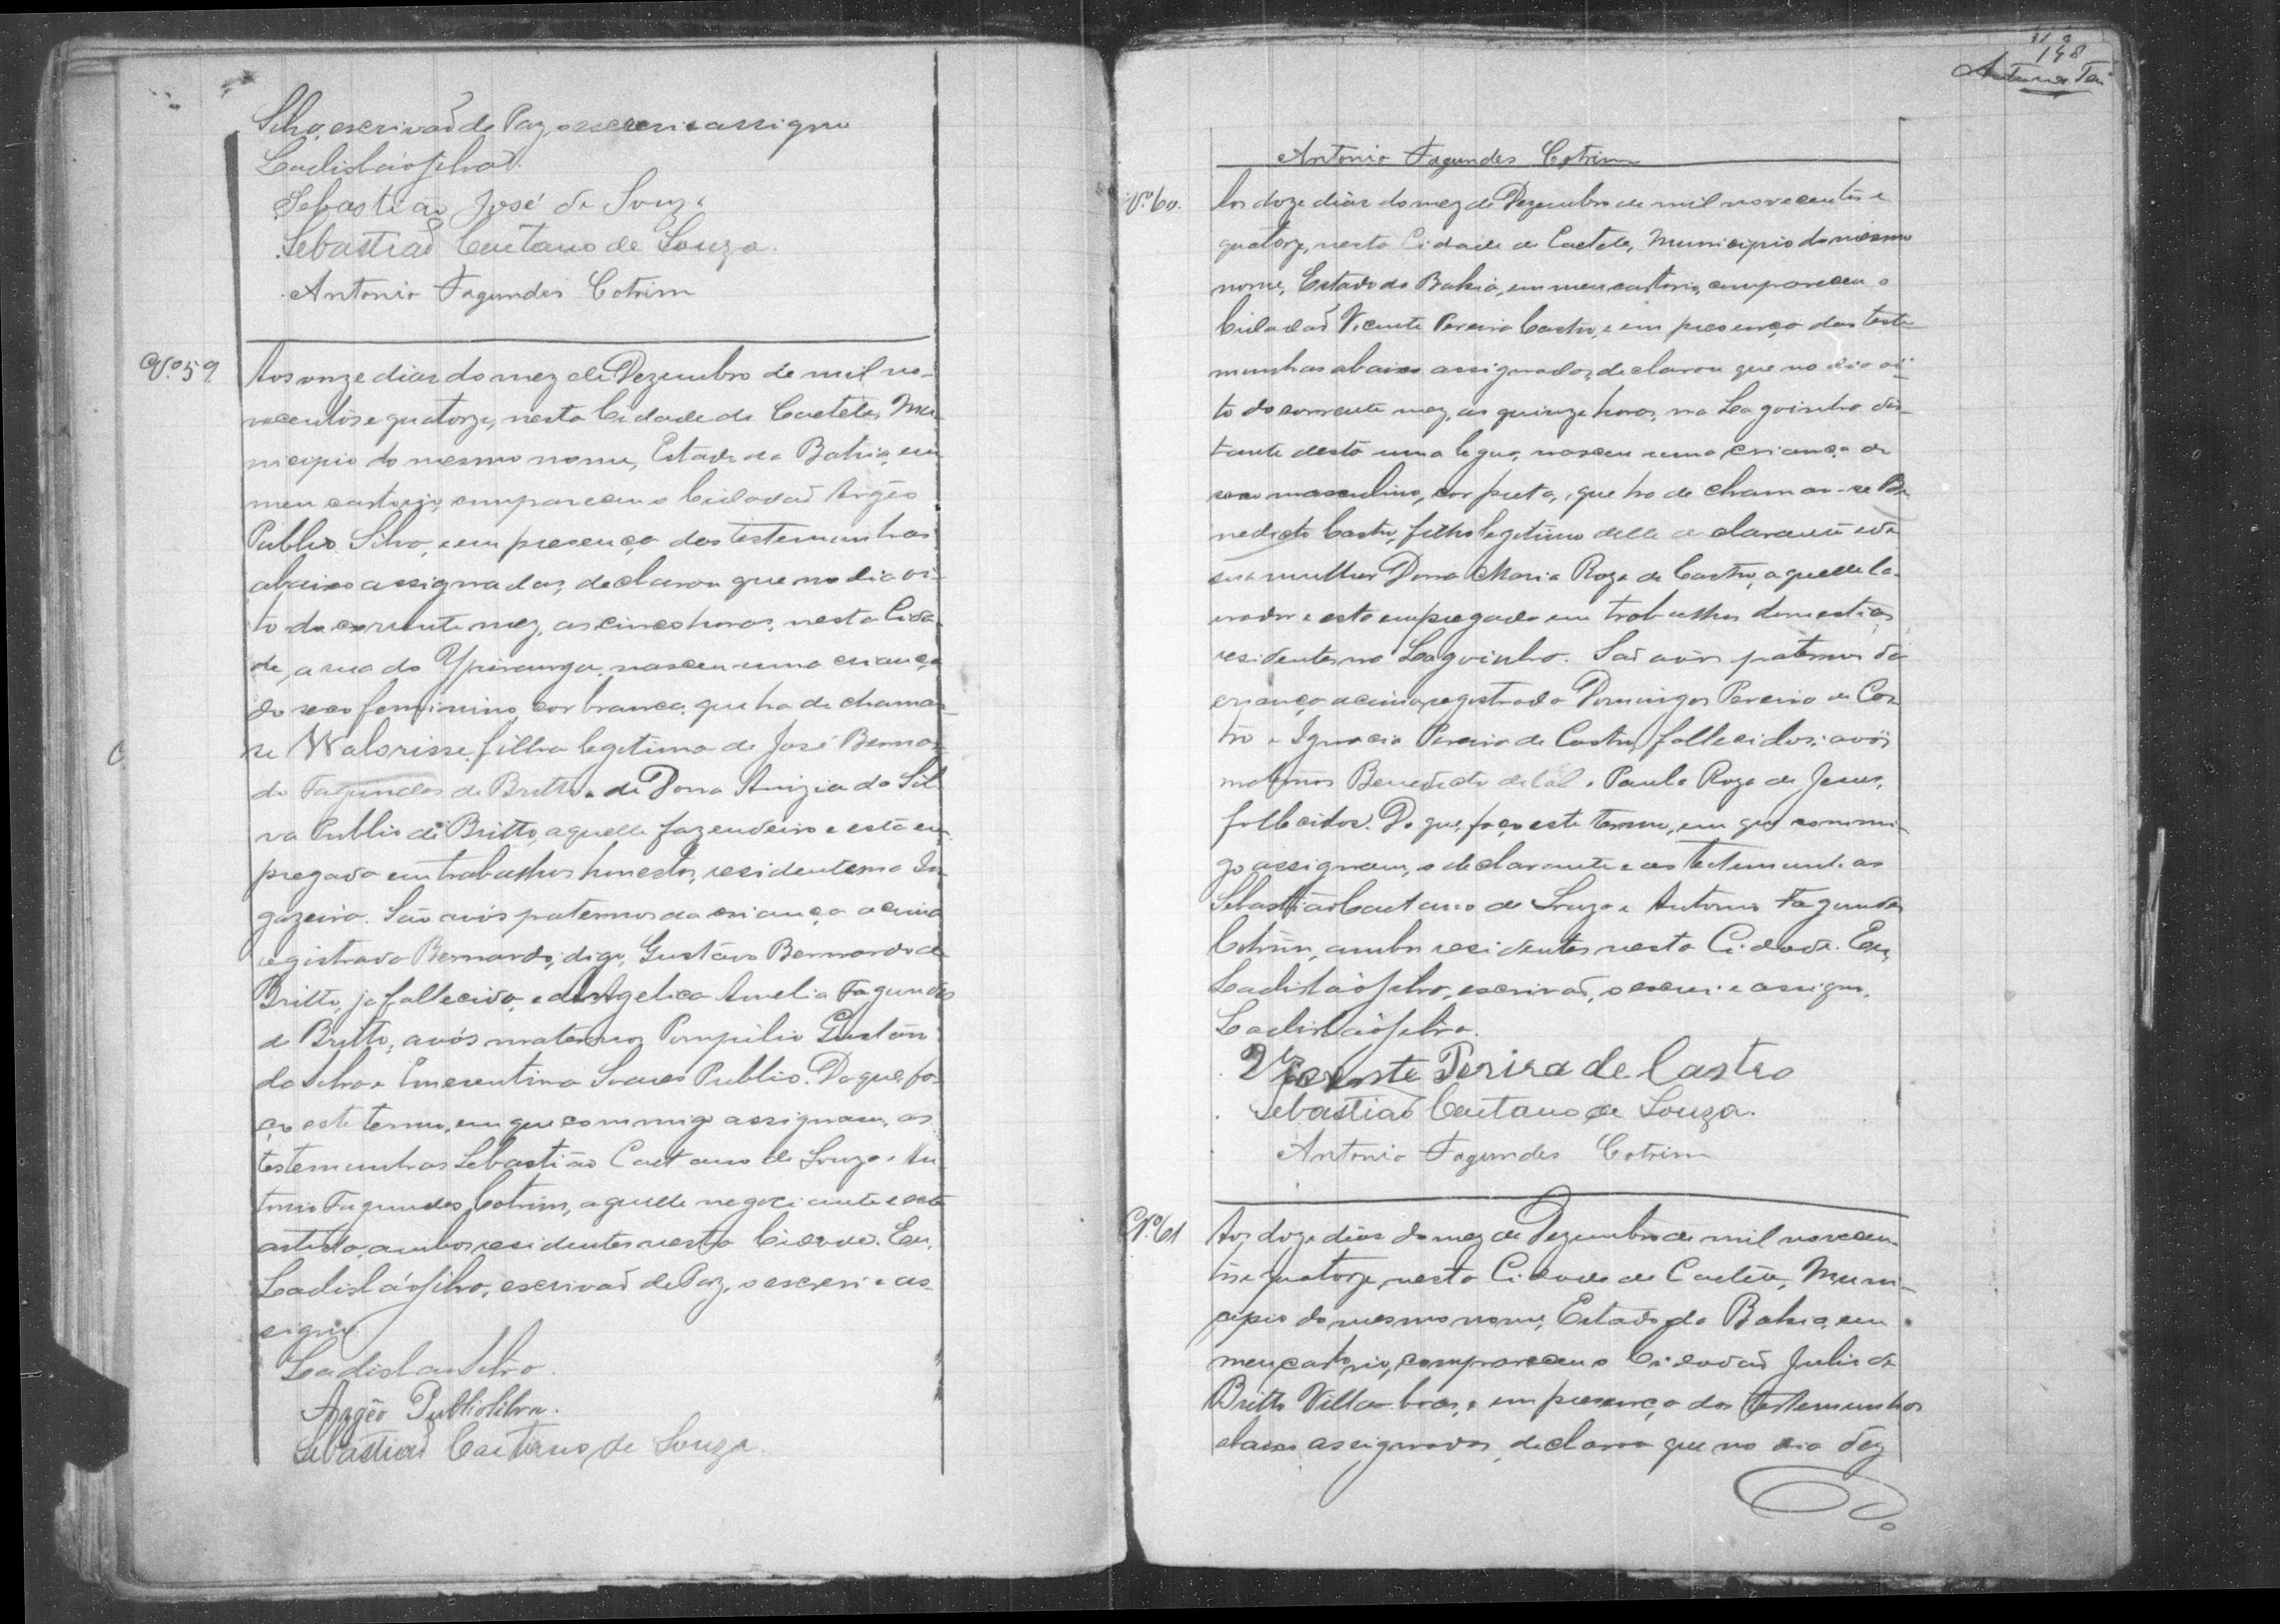 Silva, escrivaõ de Paz, o escrevi e assigno
Ladisláo Silva.
Sebastiao José de Souza
Sebastiaõ Caetano de Souza.
Antonio Fagundes Cotrim
Nº 59
Aos onze dias do mez de Dezembro de mil no-
vecentos e quatorze, nesta Cidade de Caeteté, Mu-
nicipio do mesmo nome, Estado da Bahia, em
meu cartorio, compareceu o Cidadaõ Argêo
Publio Silva, e em presença das testemunhas
abaixo assignadas, declarou que no dia oi-
to do corrente mez, as cinco horas, nesta Cida-
de, a rua do Ypiranga, nasceu uma criança
do sexo feminino, cor branca, que ha de chamar-
se Walorisse, filha legitima de José Bernar-
do Fagundes de Britto e de Dona Anizia da Sil-
va Publio de Britto, aquelle fazendeiro e esta em-
pregada em trabalhos honestos, residentes no In-
gazeiro. São avós paternos da criança acima
registrada Bernardo, digo, Gustávo Bernardo de
Britto, já fallecido, e de Angelica Amelia Fagundes
de Britto, avós maternos Pompilio Gustávo
da Silva e Emerentina Soares Publio. Do que, fa-
ço este termo, em que commigo assignam, as
testemunhas Sebastião Caetano de Souza e An-
tonio Fagundes Cotrim, aquelle negociante e este
artista, ambos residentes nesta Cidade. Eu,
Ladisláo Silva, escrivaõ de Paz, o escrevi e as-
signo
Ladislau Silva.
Argêo Publio Silva.
Sebastiaõ Caetano de Souza.
148
Antonio Fagundes Cotrim
Nº 60.
Aos doze dias do mez de Dezembro de mil novecentos e
quatorze, nesta Cidade de Caeteté, Municipio do mesmo
nome, Estado da Bahia, em meu cartorio, compareceu o
Cidadaõ Vicente Pereira Castro, e em presença das teste-
munhas abaixo assignadas, declarou que no dia oi-
to do corrente mez, as quinze horas, na Lagoinha dis-
tante desta uma legua, nasceu uma criança de
sexo masculino, cor preta, que ha de chamar-se Be-
nedicto Castro, filho legitimo delle declarante e de
sua mulher Dona Maria Roza de Castro, aquelle la-
vrador e esta empregada em trabalhos domesticos,
residentes na Lagoinha. Saõ avós paternos da
criança acima registrada Domingos Pereira de Cas-
tro e Ignacia Pereira de Castro, fallecidos; avós
maternos Benedicto de tal e Paula Roza de Jesus,
fallecidos. Do que, faço este termo, em que commi-
go assignam, o declarante e as testemunhas
Sebastião Caetano de Souza e Antonio Fagundes
Cotrim, ambos residentes nesta Cidade. Eu,
Ladisláo Silva, escrivaõ, o escrevi e assigno.
Ladisláo Silva.
Vicente Perira de Castro
Sebastiaõ Caetano de Souza.
Antonio Fagundes Cotrim
Nº 61
Aos doze dias do mez de Dezembro de mil novecen-
tos e quatorze, nesta Cidade de Caeteté, Muni-
cipio do mesmo nome, Estado da Bahia, em
meu cartorio, compareceu o Cidadaõ Julio de
Britto Villas-boas, e em presença das testemunhas
abaixo assignadas, declarou que no dia dez